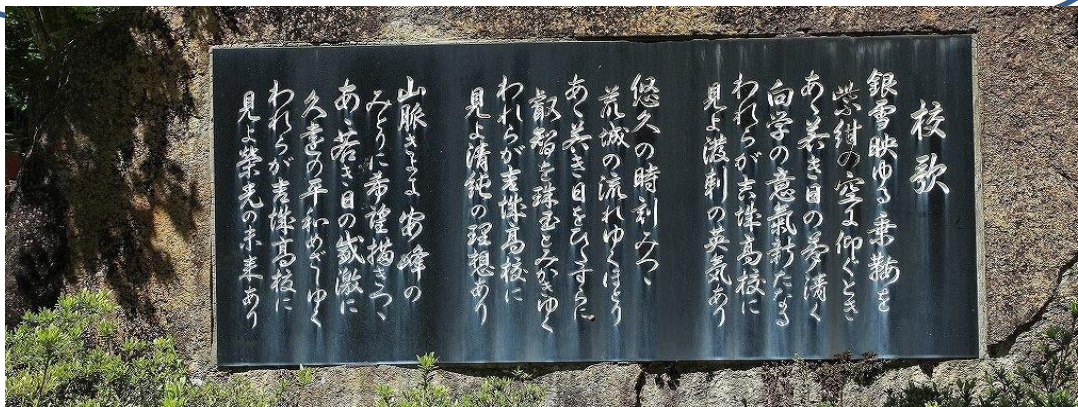 校歌
銀雪映ゆる乗鞍を
紫紺の空に仰ぐとき
あゝ若き日の夢清く
向学の意氣新たなる
われらが吉城高校に
見よ溌剌の英気あり
悠久の時刻みつゝ
荒城の流れゆくほとり
あゝ若き日をひたすらに
叡智を珠玉とみがきゆく
われらが吉城高校に
見よ清純の理想あり
山脈きよき安峰の
みどりに希望描きつゝ
あゝ若き日の感激に
久遠の平和めざしゆく
われらが吉城高校に
見よ榮光の未来あり